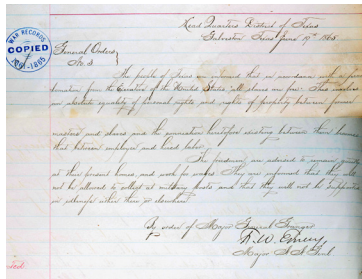 Head Quarters District of Texas
Galveston Texas June 19th 1865
WAR RECORDS
COPIED
1861-1865
General Orders
No. 3
The people of Texas are informed that in accordance with a Pro-
clamation from the Executive of the United States "all slaves are free." This involves
an absolute equality of personal rights and rights of property between former
masters and slaves and the connection heretofore existing between them becomes
that between employer and hired labor.
The freedmen are advised to remain quietly
at their present homes, and work for wages. They are informed that they will
not be allowed to collect at military posts and that they will not be supported
in idleness either there or elsewhere
By order of Major General Granger
F. W. Emery
Major